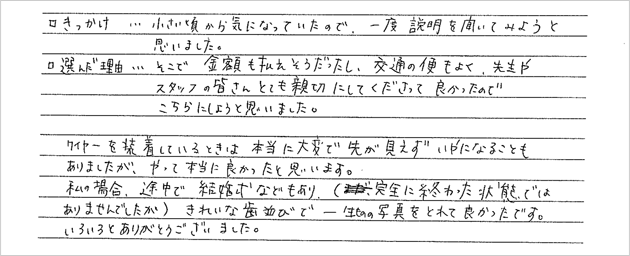 □きっかけ … 小さい頃から気になっていたので、一度 説明を聞いてみようと
思いました。
□選んだ理由 … そこで 金額も払えそうだったし、交通の便もよく、先生や
スタッフの皆さん とても親切にしてくださって 良かったので
こちらにしようと思いました。
ワイヤーを装着しているときは 本当に大変で 先が見えず いやになることも
ありましたが、やって本当に良かったと思います。
私の場合、途中で 結婚式などもあり、( 完全に終わった状態では
ありませんでしたが) きれいな歯並びで 一生ものの写真をとれて良かったです。
いろいろとありがとうございました。